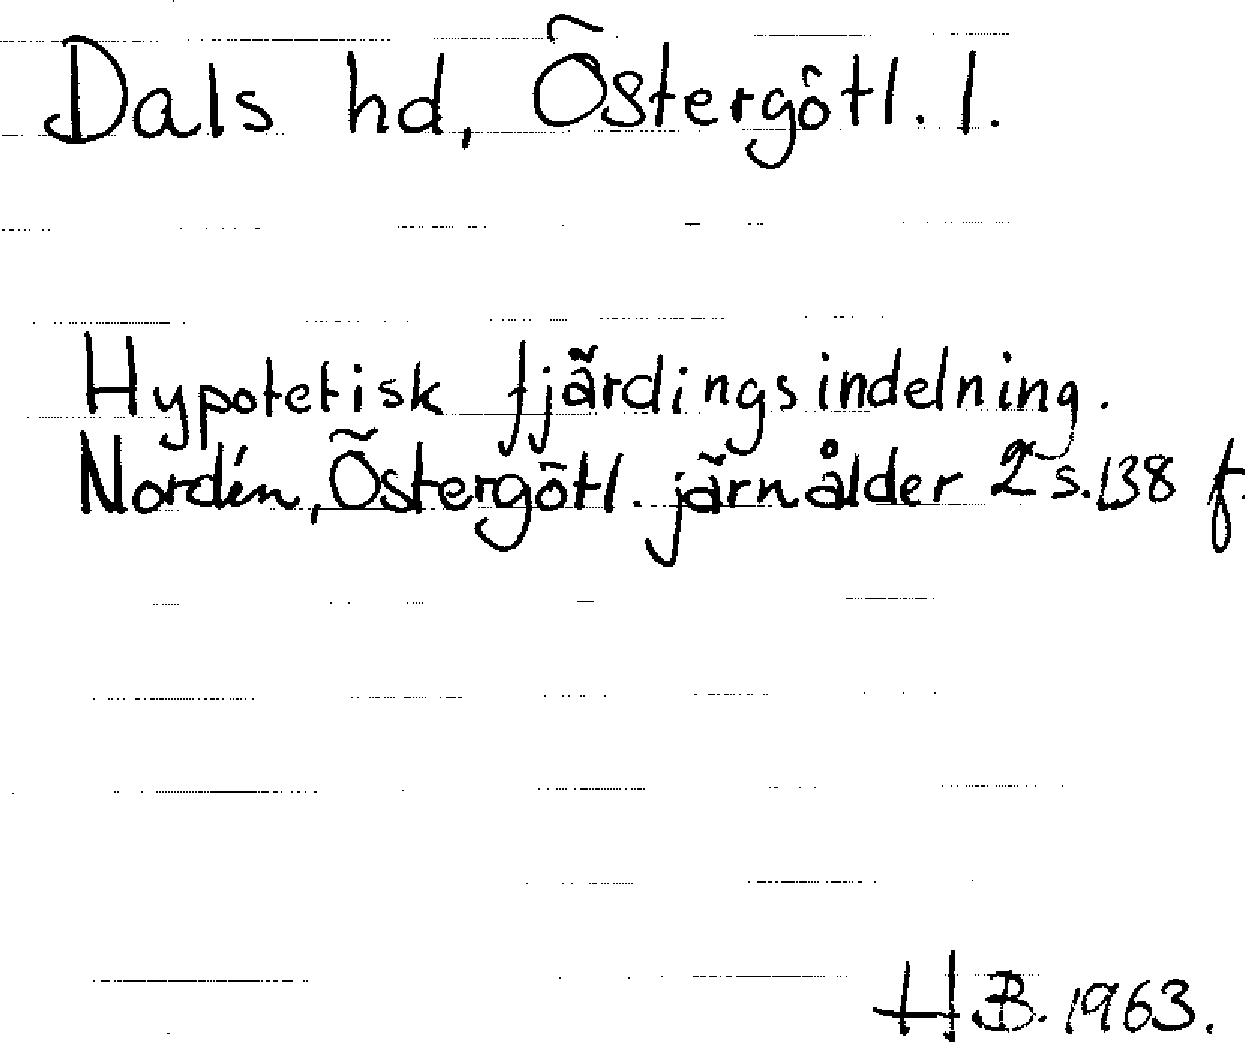 Dals hd, Östergötl. l.
Hypotetisk fjärdingsindelning.
Nordén, Östergötl. järnålder 2 s. 138 f.
H.B. 1963.